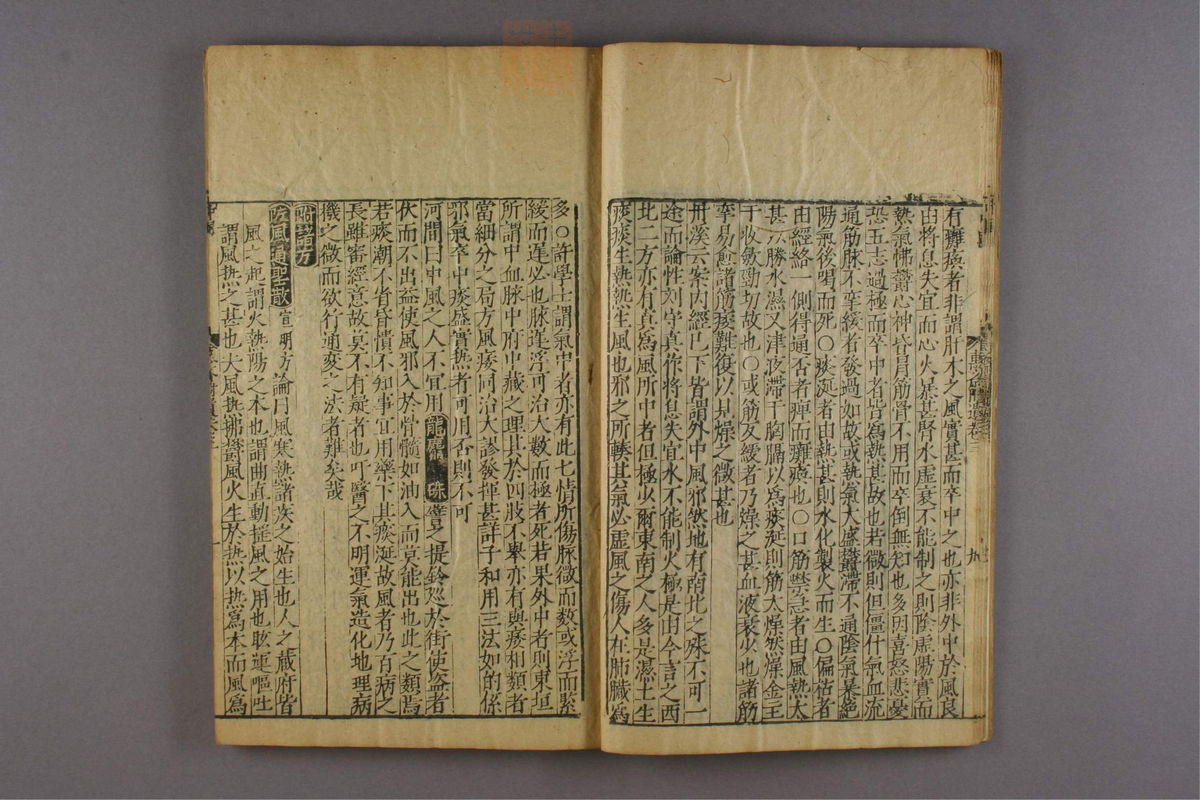 有癱瘓者非謂肝木之風實甚而卒中之也亦非外中於風良
由將息失宜而心火暴甚腎水虛衰不能制之則陰虛陽實而
熱氣怫鬱心神昏冒筋骨不用而卒倒無知也多因喜怒悲憂
恐五志過極而卒中者皆為熱甚故也若微則但僵仆氣血流
通筋脉不攣緩者發過如故或熱氣太盛鬱滯不通陰氣暴絕
陽氣後竭而死〇痰涎者由熱甚則水化製火而生〇偏枯者
由經絡一側得通否者痺而癱瘓也〇口筋緊者由風熱太
甚以勝水濕又津液滯于胸膈以為痰涎則筋太燥然燥金主
于收歛勁切故也〇或筋反緩者乃燥之甚血液衰少也諸筋
攣易愈諸筋痿難復以見燥之微甚也
丹溪云案內經已下皆謂外中風邪然地有南北之殊不可一
途而論惟刘守真作將息失宜水不能制火極是由今言之西
北二方亦有真為風所中者但極少爾東南之人多是濕土生
痰痰生熱熱生風也邪之所輳其氣必虛風之傷人在肺臟為
多〇許學士謂氣中者亦有此七情所傷脉微而数或浮而緊
緩而遲必也脉遲浮可治大數而極者死若果外中者則東垣
所謂中血脉中府中藏之理其於四肢不舉亦有與痿相類者
當細分之局方風痿同治大謬發揮甚詳子和用三法如的係
邪氣卒中痰盛實熱者可用否則不可
河間曰中風之人不宜用龍麝硃犀之提鈴巡於街使盜者
伏而不出益使風邪入於骨髓如油入而莫能出也此之類焉
若痰潮不省昏憒不知事宜用藥下其痰涎故風者乃百病之
長雖審經意故莫不有疑者也吁醫之不明運氣造化地理病
機之微而欲行通变之法者難矣哉
附諸方
防風通聖散 宣明方 論曰風寒熱諸疾之始生也人之藏府皆
風之起謂火熱陽之本也謂曲直動搖風之用也眩運嘔吐
謂風热之甚也夫風热怫鬱風火生於热以热為本而風為